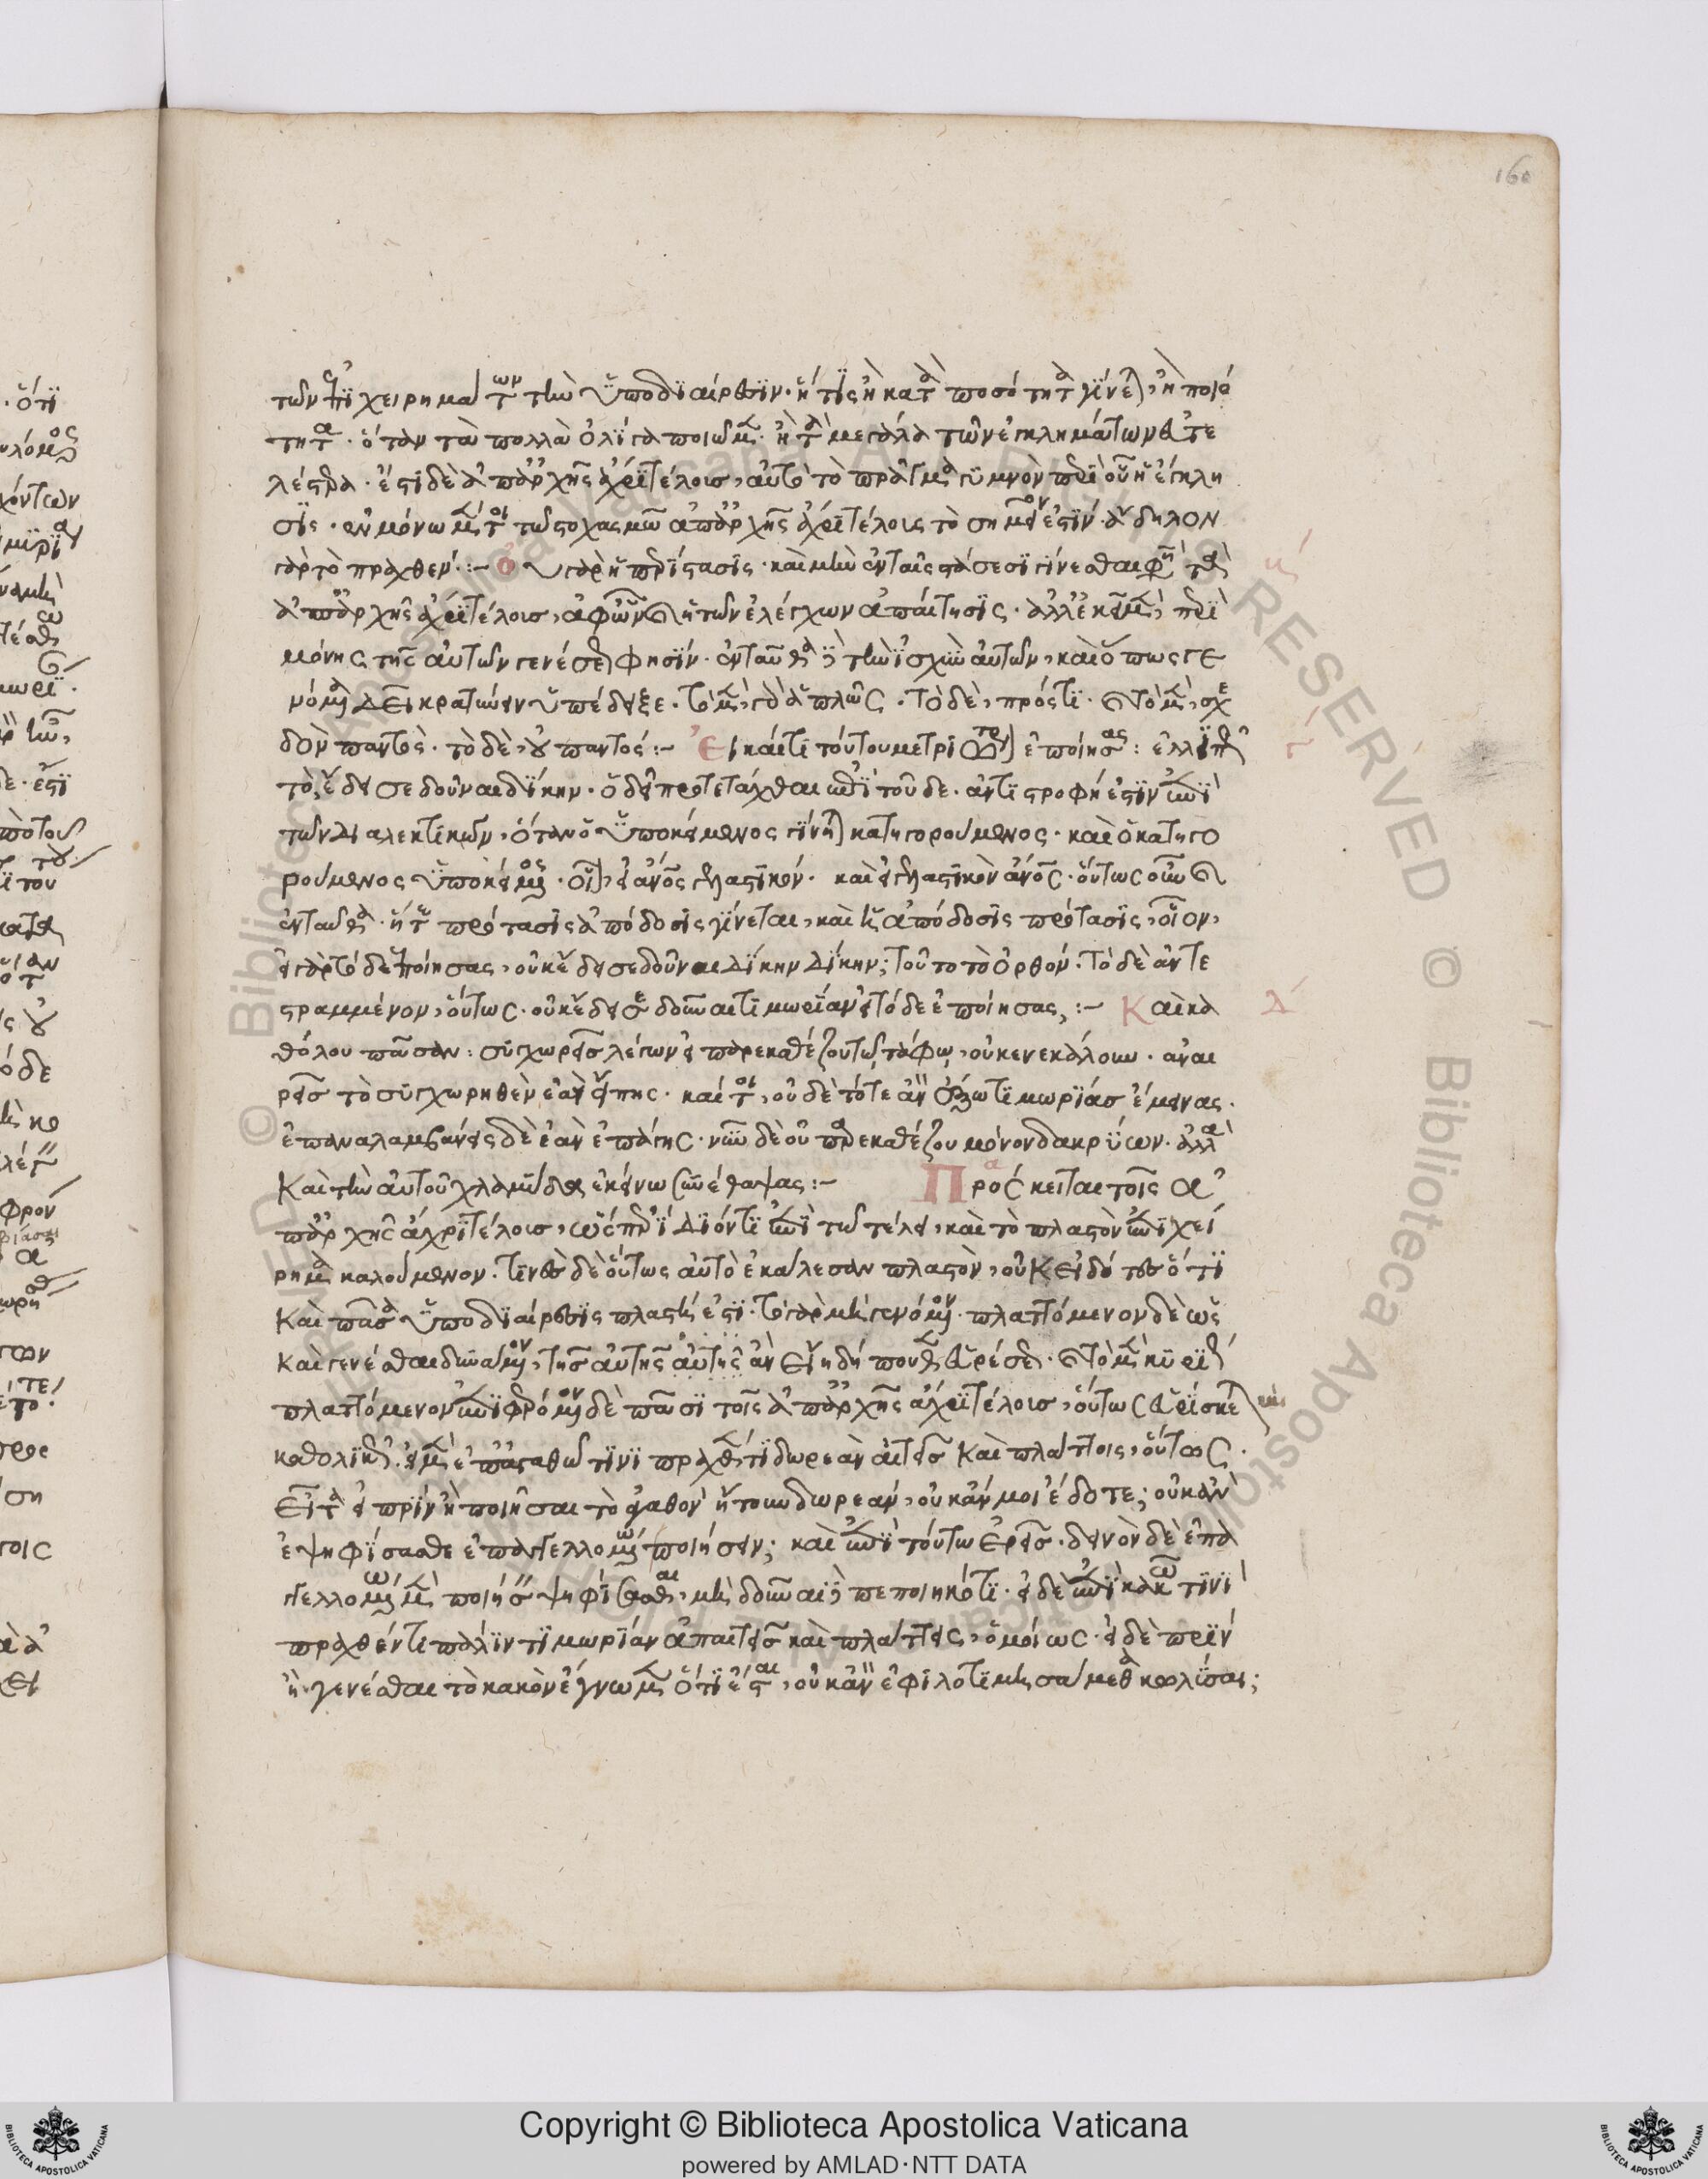 160
τῶν ἐπιχειρημάτων τὴν ὑποδιαίρεσιν· ἥτις ἢ κατὰ ποσότητα γίνεται, ἢ ποιό
τητα· ὅταν τὰ πολλὰ ὀλίγα ποιῶμεν· ἢ τὰ μεγάλα τῶν ἐγκλημάτων εὐτε
λέστερα· ἔστι δὲ ἀπ' ἀρχῆς ἄχρι τέλους, αὐτὸ τὸ πρᾶγμα γυμνὸν περὶ οὗ ἡ ἔγκλη
σις· ἐν μόνω μέντοι τῶ στοχασμῶ ἀπ' ἀρχῆς ἄχρι τέλους τὸ σημεῖόν ἐστιν· ἄδηλον
γὰρ τὸ πραχθέν :– Οὐ γὰρ ἡ περίστασις· καὶ μὴν ἐν ταῖς στάσεσι γίνεσθαι
ἀπ' ἀρχῆς ἄχρι τέλους, ἡ τῶν ἐλέγχων ἀπαίτησις· ἀλλ' ἐκεῖ μὲν, περὶ
μόνης τῆς αὐτῶν γενέσεως φησίν· ἐνταῦθα τὴν ἰσχὺν αὐτῶν, καὶ ὅπως γε
νόμενα κρατύνειν ὑπέδειξε· τὸ μὲν, γὰρ ἁπλῶς· τὸ δὲ, πρός τι· τὸ μὲν, σχε
δὸν παντὸς· τὸ δὲ, οὐ παντός :– Εἰ καί τι τούτου μετριώτερον ἐποίησας : ἐλλιπὲς
τὸ, ἔδει σε δοῦναι δίκην· ὃ δεῖ προτετάχθαι ἐπὶ τοῦδε· ἀντιστροφή ἐστιν ἐπὶ
τῶν διαλεκτικῶν, ὅταν ὁ ὑποκείμενος γίνηται κατηγορούμενος· καὶ ὁ κατηγο
ρούμενος ὑποκείμενος· οἷον, εἰ ἄνθρωπος γελαστικόν· καὶ εἰ γελαστικὸν ἄνθρωπος· οὕτως οὖν
ἐνταῦθα· ἥ τε πρότασις ἀπόδοσις γίνεται, καὶ ἡ ἀπόδοσις πρότασις, οἷον,
εἰ γὰρ τόδε ἐποίησας, οὐκ ἔδει σε δοῦναι δίκην δίκην; τοῦτο τὸ ὀρθόν· τὸ δὲ ἀντε
στραμμένον, οὕτως· οὐκ ἔδει σε δοῦναι τιμωρίαν εἰ τόδε ἐποίησας, :– Καὶ κα
θόλου πᾶσαν : συγχωρεῖς λέγων εἰ παρεκαθέζου τῶ τάφω, οὐκ ἐνεκάλουν· ἀναι
ρεῖς τὸ συγχωρηθὲν ἐὰν εἴπης· καί τοι, οὐδὲ τότε ἂν ἔξω τιμωρίας ἔμεινας·
ἐπαναλαμβάνεις δὲ ἐὰν ἐπάγης· νῦν δὲ οὐ παρεκαθέζου μόνον δακρύων· ἀλλὰ
καὶ τὴν αὐτοῦ χλαμύδα ἐκείνω συνέθαψας :– Πρόσκειται τοῖς ἀ
π' ἀρχῆς ἄχρι τέλους, ὡς περιϊδιόν τι ἐπὶ τῶ τέλει, καὶ τὸ πλαστὸν ἐπιχεί
ρημα καλούμενον· τινὲς δὲ οὕτως αὐτὸ ἐκάλεσαν πλαστὸν, οὐκ εἰδότες ὅτι
καὶ πᾶσα ὑποδιαίρεσις πλαστή ἐστι· τὸ γὰρ μὴ γενόμενον· πλαττόμενον δὲ ὡς
καὶ γενέσθαι δυνάμενον, τῆς αὐτῆς αὐτῆς ἂν εἴη δή που εὑρέσεως· τὸ μὲν κυρίως
πλαττόμενον ἐπιφερόμενον δὲ πᾶσι τοῖς ἀπ' ἀρχῆς ἄχρι τέλους, οὕτως εὑρίσκεται
καθολικῶς· εἰ μὲν ἐπ' ἀγαθῶ τινι πραχθέντι δωρεὰν αἰτεῖς καὶ πλάττοις, οὕτως·
εἶτα εἰ πρὶν ἢ ποιῆσαι τὸ ἀγαθὸν ἤτουν δωρεάν, οὐκ ἄν μοι ἔδοτε; οὐκ ἂν
ἐψηφίσασθε ἐπαγγελλομένω ποιήσειν; καὶ ἐπὶ τούτω ἐρεῖς· δεινὸν δὲ ἐπα
γγελλομένω μὲν ποιήσειν ψηφίσασθαι, μὴ δοῦναι πεποιηκότι· εἰ δὲ ἐπὶ κακῶ τινὶ
πραχθέντι πάλιν τιμωρίαν ἀπαιτεῖς καὶ πλάττεις, ὁμοίως· εἰ δὲ πρὶν
ἢ γενέσθαι τὸ κακὸν ἔγνωμεν ὅτι ἔσται, οὐκ ἂν ἐφιλοτιμησάμεθα κωλῦσαι;
Copyright © Biblioteca Apostolica Vaticana
powered by AMLAD·NTT DATA